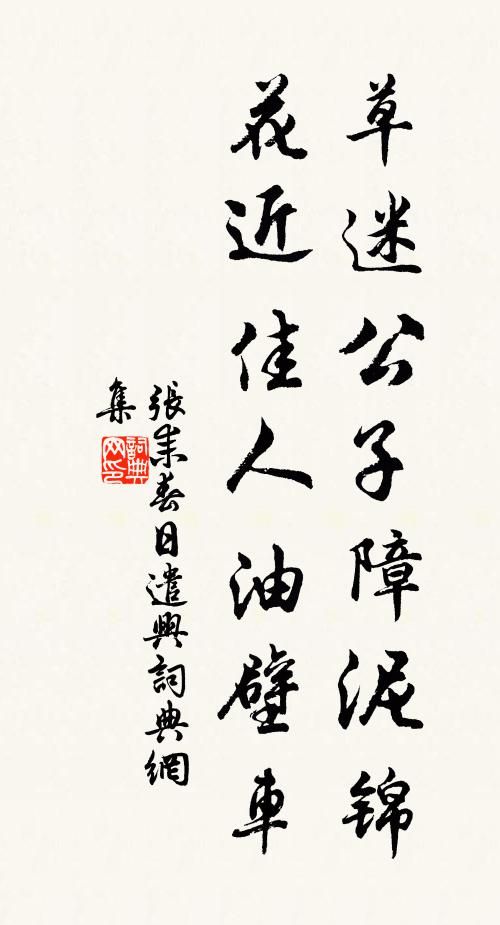 草迷公子障泥锦
花近佳人油壁車
張耒春日遣興詞典網
集
詞典
网印